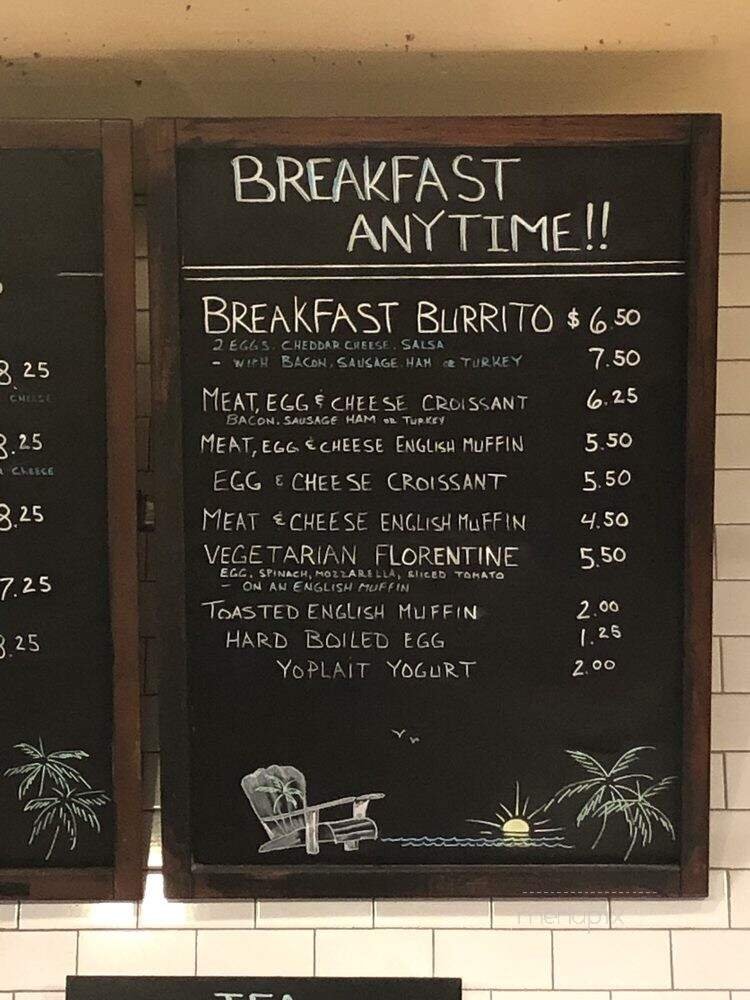 BREAKFAST
ANYTIME!!
BREAKFAST BURRITO $ 6.50
2 EGGS. CHEDDAR CHEESE. SALSA
- WITH BACON, SAUSAGE HAM OR TURKEY 7.50
MEAT, EGG & CHEESE CROISSANT 6.25
BACON. SAUSAGE HAM OR TURKEY
MEAT, EGG & CHEESE ENGLISH MUFFIN 5.50
EGG & CHEESE CROISSANT 5.50
MEAT & CHEESE ENGLISH MUFFIN 4.50
VEGETARIAN FLORENTINE 5.50
EGG, SPINACH, MOZZARELLA, SLICED TOMATO
- ON AN ENGLISH MUFFIN
TOASTED ENGLISH MUFFIN 2.00
HARD BOILED EGG 1.25
YOPLAIT YOGURT 2.00
8.25
CHEESE
8.25
CHEESE
8.25
7.25
8.25
menupix
TEA